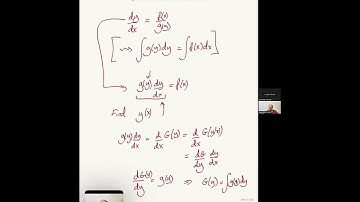 dy/dx = f(x)/g(y)
[ ⤳ ∫g(y)dy = ∫f(x)dx ]
g(y) dy/dx = f(x)
Find y(x)
g(y) dy/dx = d/dx G(y) = d/dx G(y(x))
= dG/dy dy/dx
dG(y)/dy = g(y) ⇒ G(y) = ∫g(y)dy